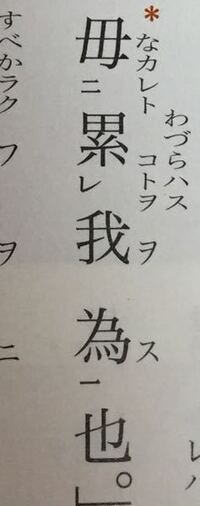 レハ
わづらハス
*なカレト コトヲ ヲ ス
毋ニ累レ我為一也。」
すべかラク フ ヲ ニ